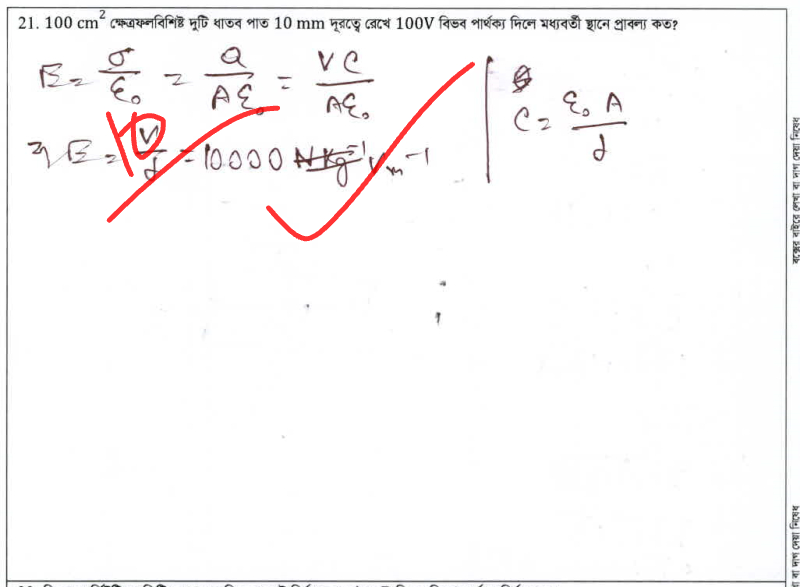 21. 100 cm² ক্ষেত্রফলবিশিষ্ট দুটি ধাতব পাত 10 mm দূরত্বে রেখে 100V বিভব পার্থক্য দিলে মধ্যবর্তী স্থানে প্রাবল্য কত?
E = σ/ε₀ = Q/Aε₀ = VC/Aε₀
C = ε₀ A/d
⇒ E = V/d = 10000 Vm⁻¹
10
বক্সের বাইরে লেখা বা দাগ দেয়া নিষেধ
বা দাগ দেয়া নিষেধ